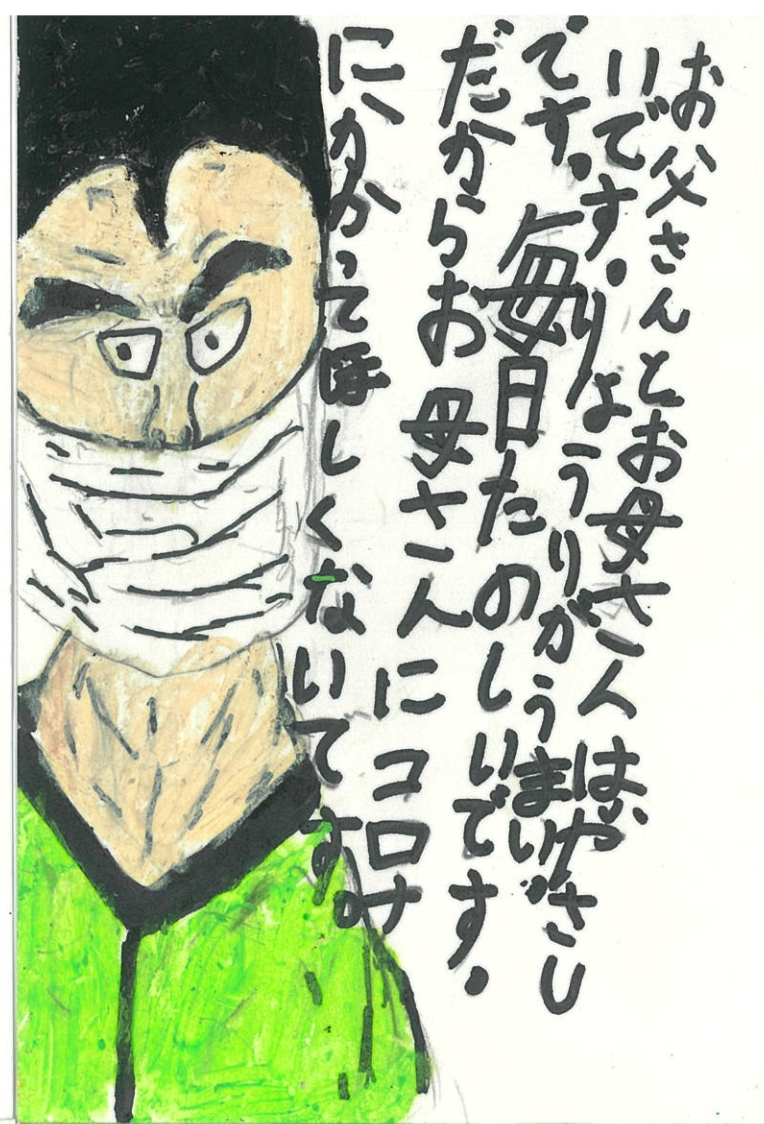 お父さんとお母さんは、やさし
いです。りょうりがうまい
です。毎日たのしいです。
だからお母さんにコロナ
に、かかってほしくないてす。